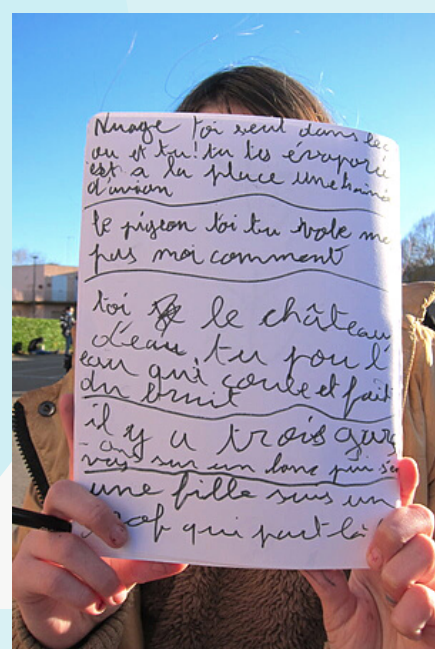 Nuage toi seul dans le c
ou et tu! tu t'es évaporé
est a la place une traîné
d'avion
le pigeon toi tu vole me
pas moi comment
toi le château
d'eau, tu pou l
eau qui coule et fait
du bruit
il y a trois garç
-ons sur un banc puis s'en
vais
une fille suis un
prof qui part là